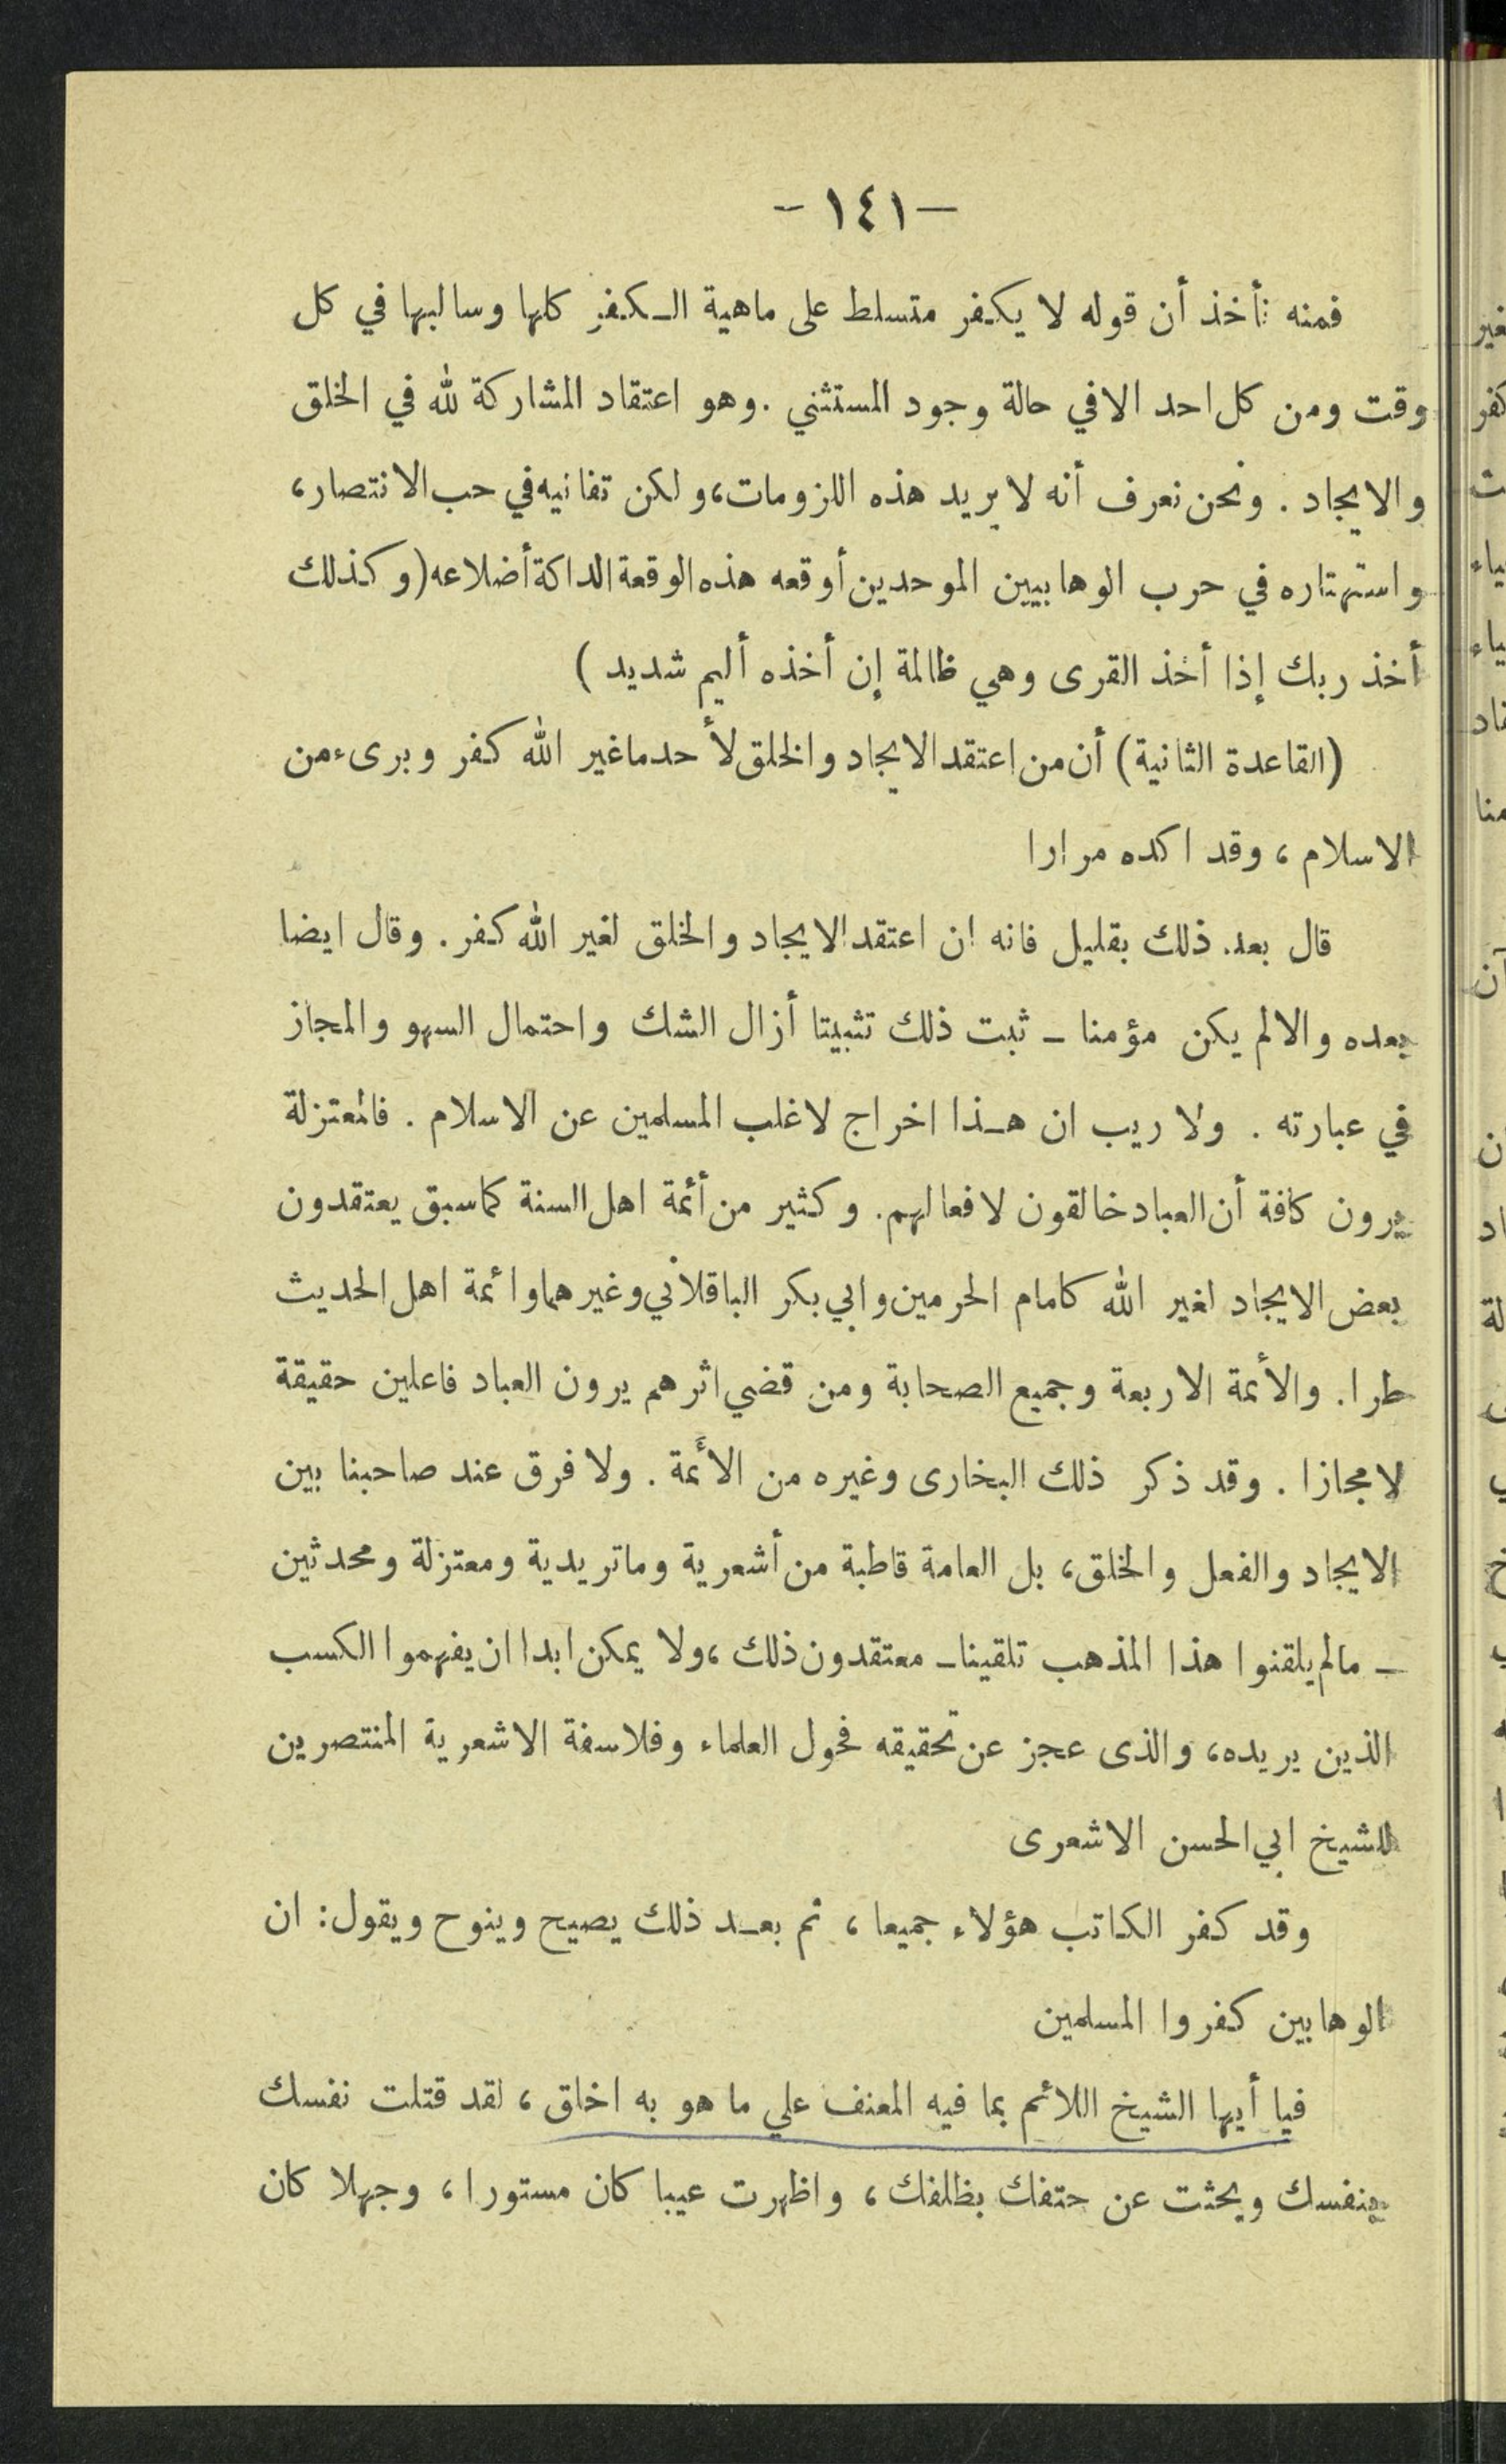 — ١٤١ —
فمنه نأخذ أن قوله لا يكفر متسلط على ماهية الكفر كلها وسالبها في كل
وقت ومن كل احد الا في حالة وجود المستثني . وهو اعتقاد المشاركة لله في الخلق
والايجاد . ونحن نعرف أنه لا يريد هذه اللزومات، ولكن تفانيه في حب الانتصار،
واستهتاره في حرب الوهابيين الموحدين أوقعه هذه الوقعة الداكة أضلاعه (وكذلك
أخذ ربك إذا أخذ القرى وهي ظالمة إن أخذه أليم شديد )
(القاعدة الثانية) أن من اعتقد الايجاد والخلق لأحد ما غير الله كفر وبرىء من
الاسلام ، وقد اكده مرارا
قال بعد ذلك بقليل فانه ان اعتقد الايجاد والخلق لغير الله كفر . وقال ايضا
بعده والا لم يكن مؤمنا - ثبت ذلك تثبيتا أزال الشك واحتمال السهو والمجاز
في عبارته . ولا ريب ان هذا اخراج لاغلب المسلمين عن الاسلام . فالمعتزلة
يرون كافة أن العباد خالقون لافعالهم. وكثير من أئمة اهل السنة كما سبق يعتقدون
بعض الايجاد لغير الله كامام الحرمين وابي بكر الباقلاني وغيرهما وائمة اهل الحديث
طرا . والأئمة الاربعة وجميع الصحابة ومن قضي اثرهم يرون العباد فاعلين حقيقة
لا مجازا . وقد ذكر ذلك البخارى وغيره من الأئمة . ولا فرق عند صاحبنا بين
الايجاد والفعل والخلق، بل العامة قاطبة من أشعرية وماتريدية ومعتزلة ومحدثين
- مالم يلقنوا هذا المذهب تلقينا - معتقدون ذلك ، ولا يمكن ابدا ان يفهموا الكسب
الذين يريده، والذى عجز عن تحقيقه فحول العلماء وفلاسفة الاشعرية المنتصرين
للشيخ ابي الحسن الاشعرى
وقد كفر الكاتب هؤلاء جميعا ، ثم بعد ذلك يصيح وينوح ويقول : ان
الوهابين كفروا المسلمين
فيا أيها الشيخ اللائم بما فيه المعنف علي ما هو به اخلق ، لقد قتلت نفسك
بنفسك وبحثت عن حتفك بظلفك ، واظهرت عيبا كان مستورا ، وجهلا كان